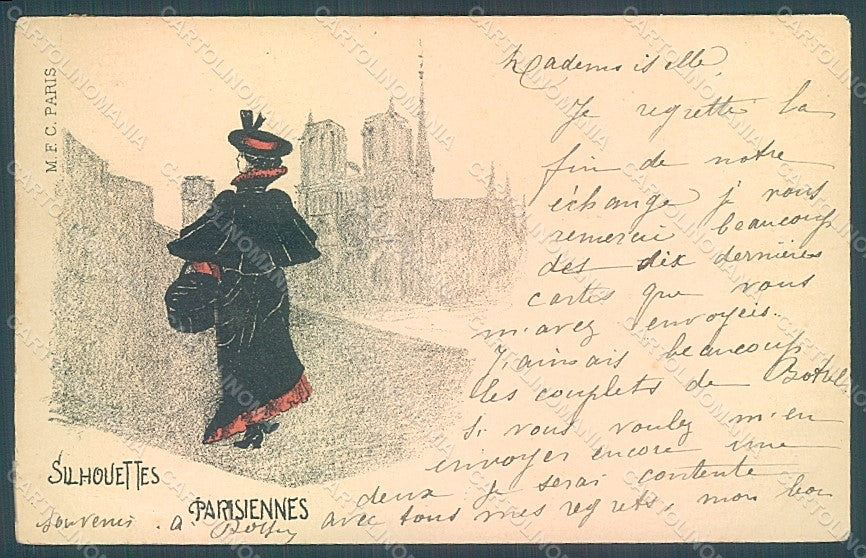 M. F. C. PARIS
Mademoiselle,
Je regrette la
fin de notre
échange je vous
remerci beaucoup
des dix dernières
cartes que vous
m'avez envoyées.
J'aimais beaucoup
les couplets de Botrel
Si vous voulez m'en
envoyer encore une
deux je serai contente
avec tous mes regrets, mon bon
souvenir. A.
SILHOUETTES
PARISIENNES
CARTOLINOMANIA